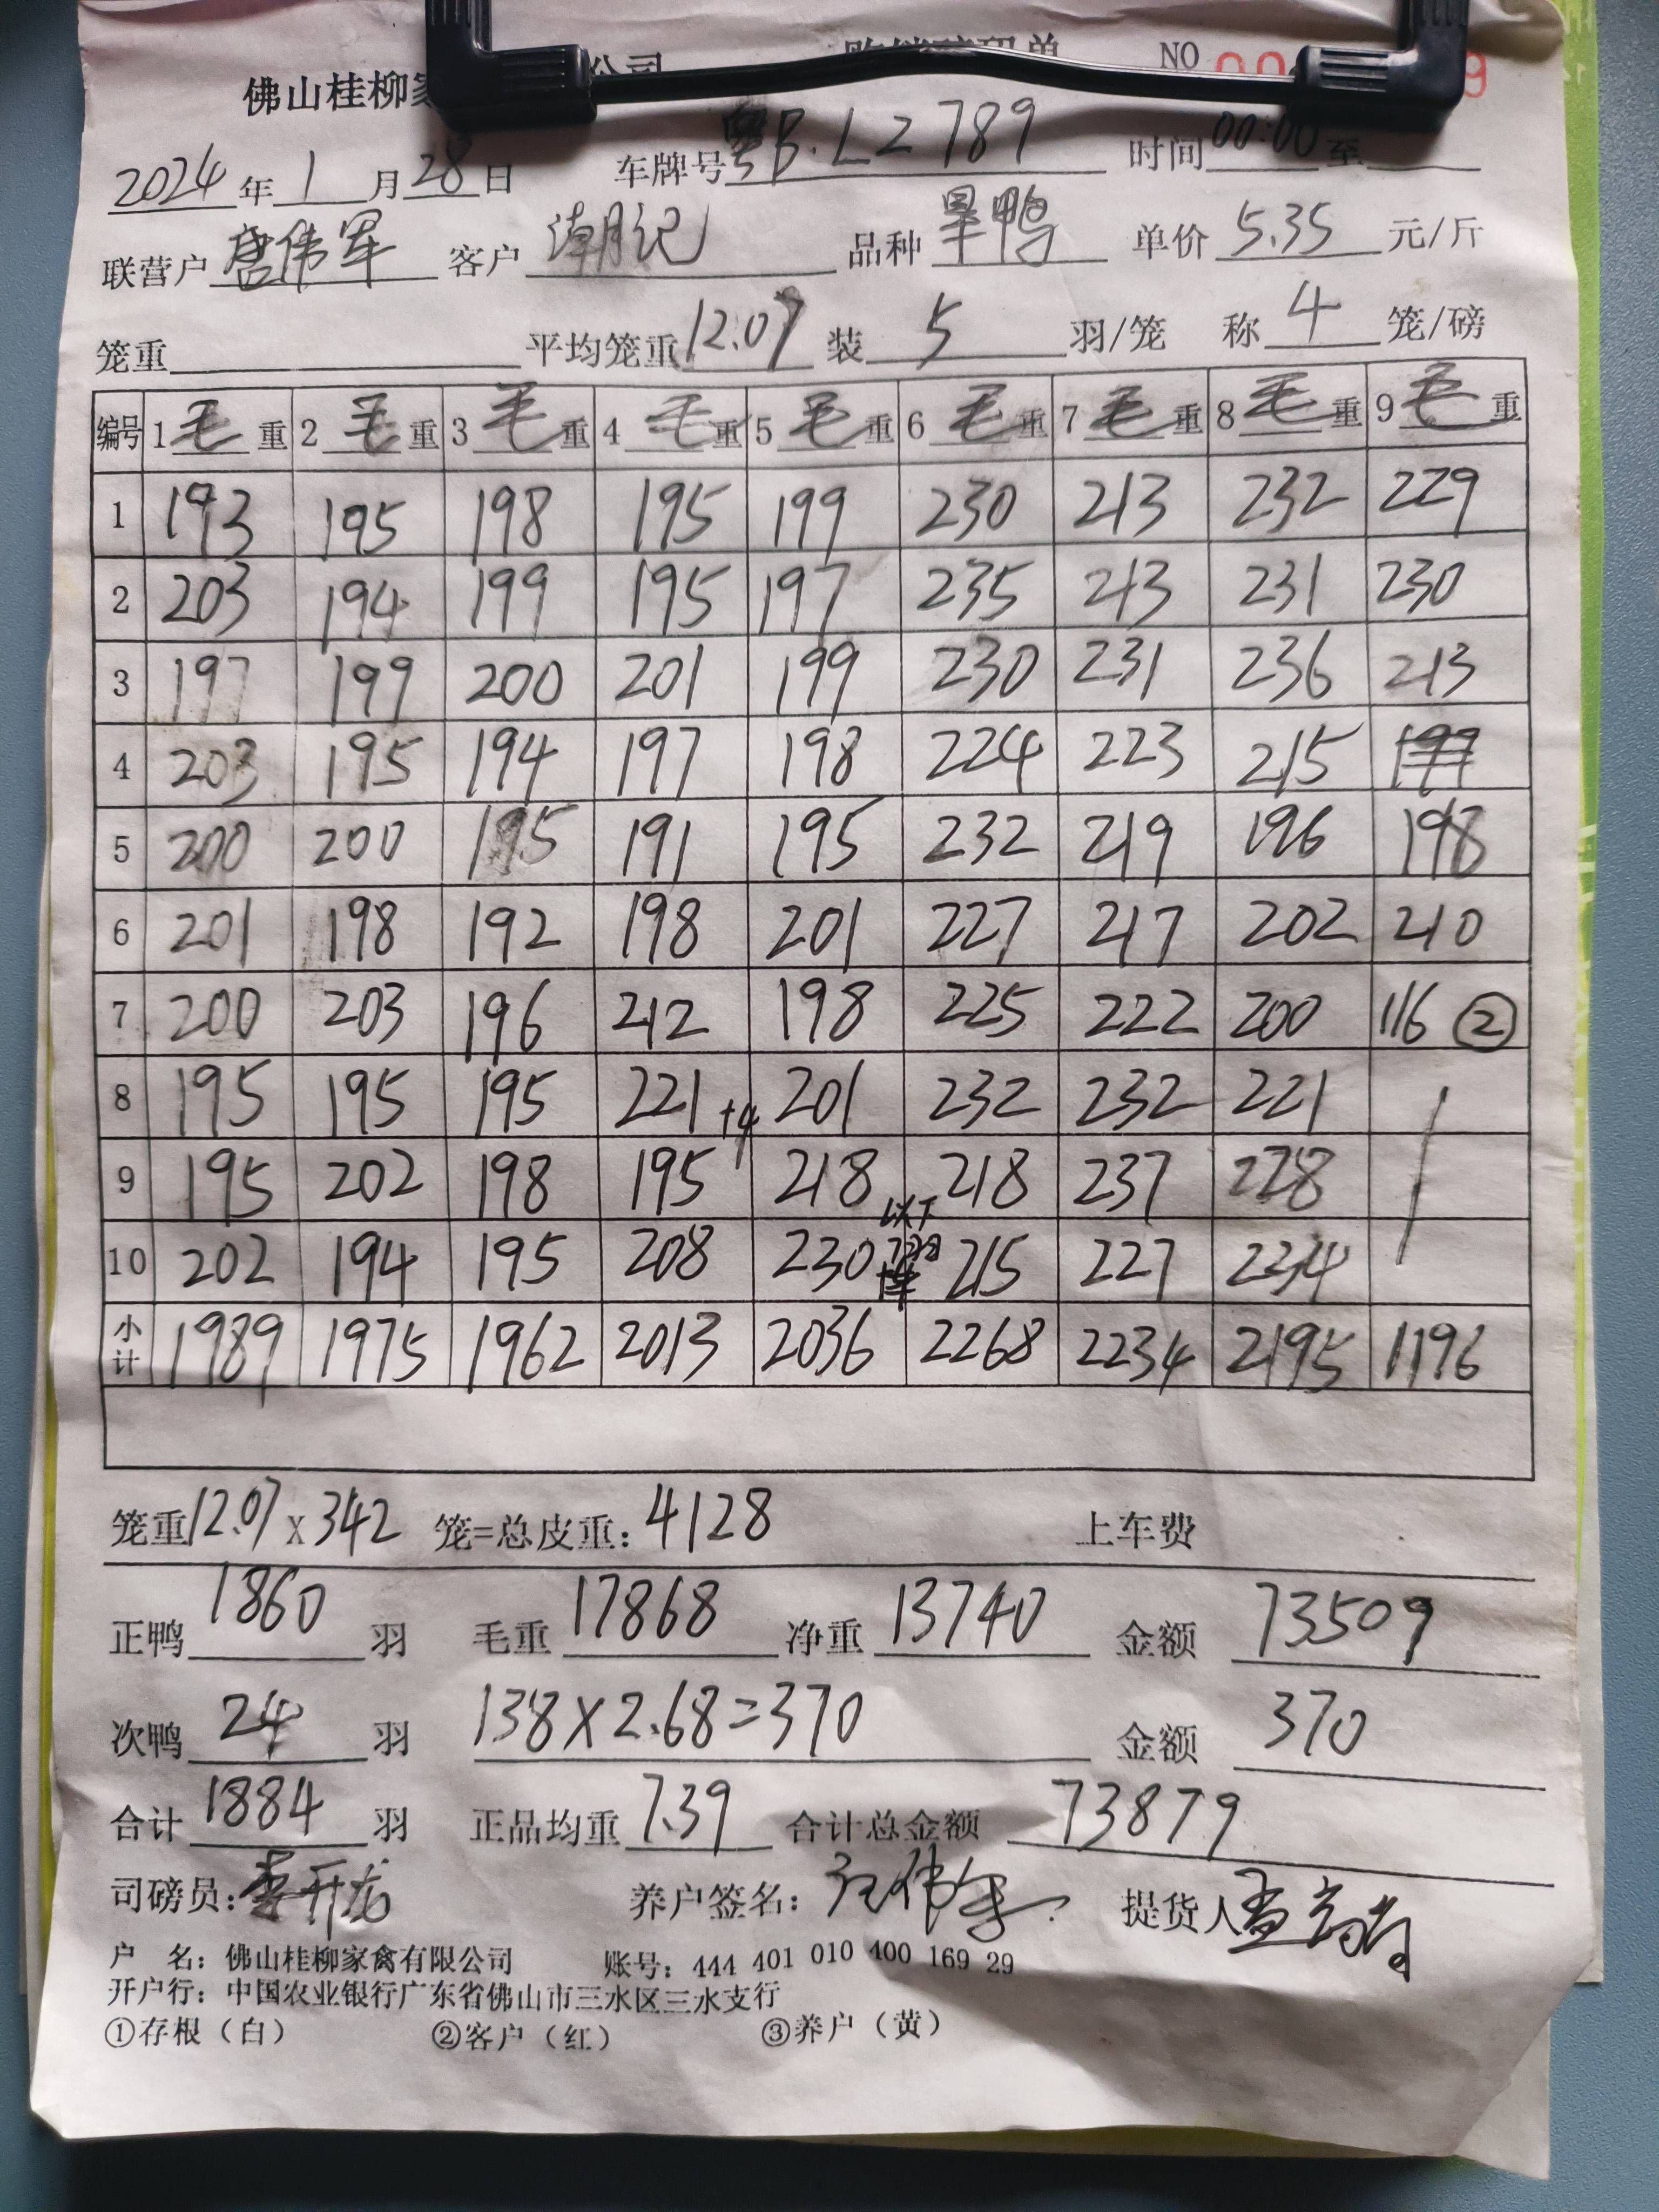 佛山桂柳 公司 NO
2024年1月28日 车牌号粤B·L2789 时间00:00至
联营户唐伟军 客户潮记 品种旱鸭 单价5.35元/斤
笼重 平均笼重12.07 装5羽/笼 称4笼/磅
编号 1毛重 2毛重 3毛重 4毛重 5毛重 6毛重 7毛重 8毛重 9毛重
1 193 195 198 195 199 230 213 232 229
2 203 194 199 195 197 235 213 231 230
3 197 199 200 201 199 230 231 236 213
4 203 195 194 197 198 224 223 215 199
5 200 200 195 191 195 232 219 196 198
6 201 198 192 198 201 227 217 202 210
7 200 203 196 212 198 225 222 200 116 ②
8 195 195 195 221 +4 201 232 232 221
9 195 202 198 195 218 218 237 228
10 202 194 195 208 230 以下 215 227 234
小计 1989 1975 1962 2013 2036 2268 2234 2195 1196
笼重12.07x342 笼=总皮重:4128 上车费
正鸭1860羽 毛重17868 净重13740 金额73509
次鸭24羽 138X2.68=370 金额370
合计1884羽 正品均重7.39 合计总金额73879
司磅员:李开龙 养户签名: 提货人
户 名:佛山桂柳家禽有限公司 账号:444 401 010 400 169 29
开户行:中国农业银行广东省佛山市三水区三水支行
①存根(白) ②客户(红) ③养户(黄)